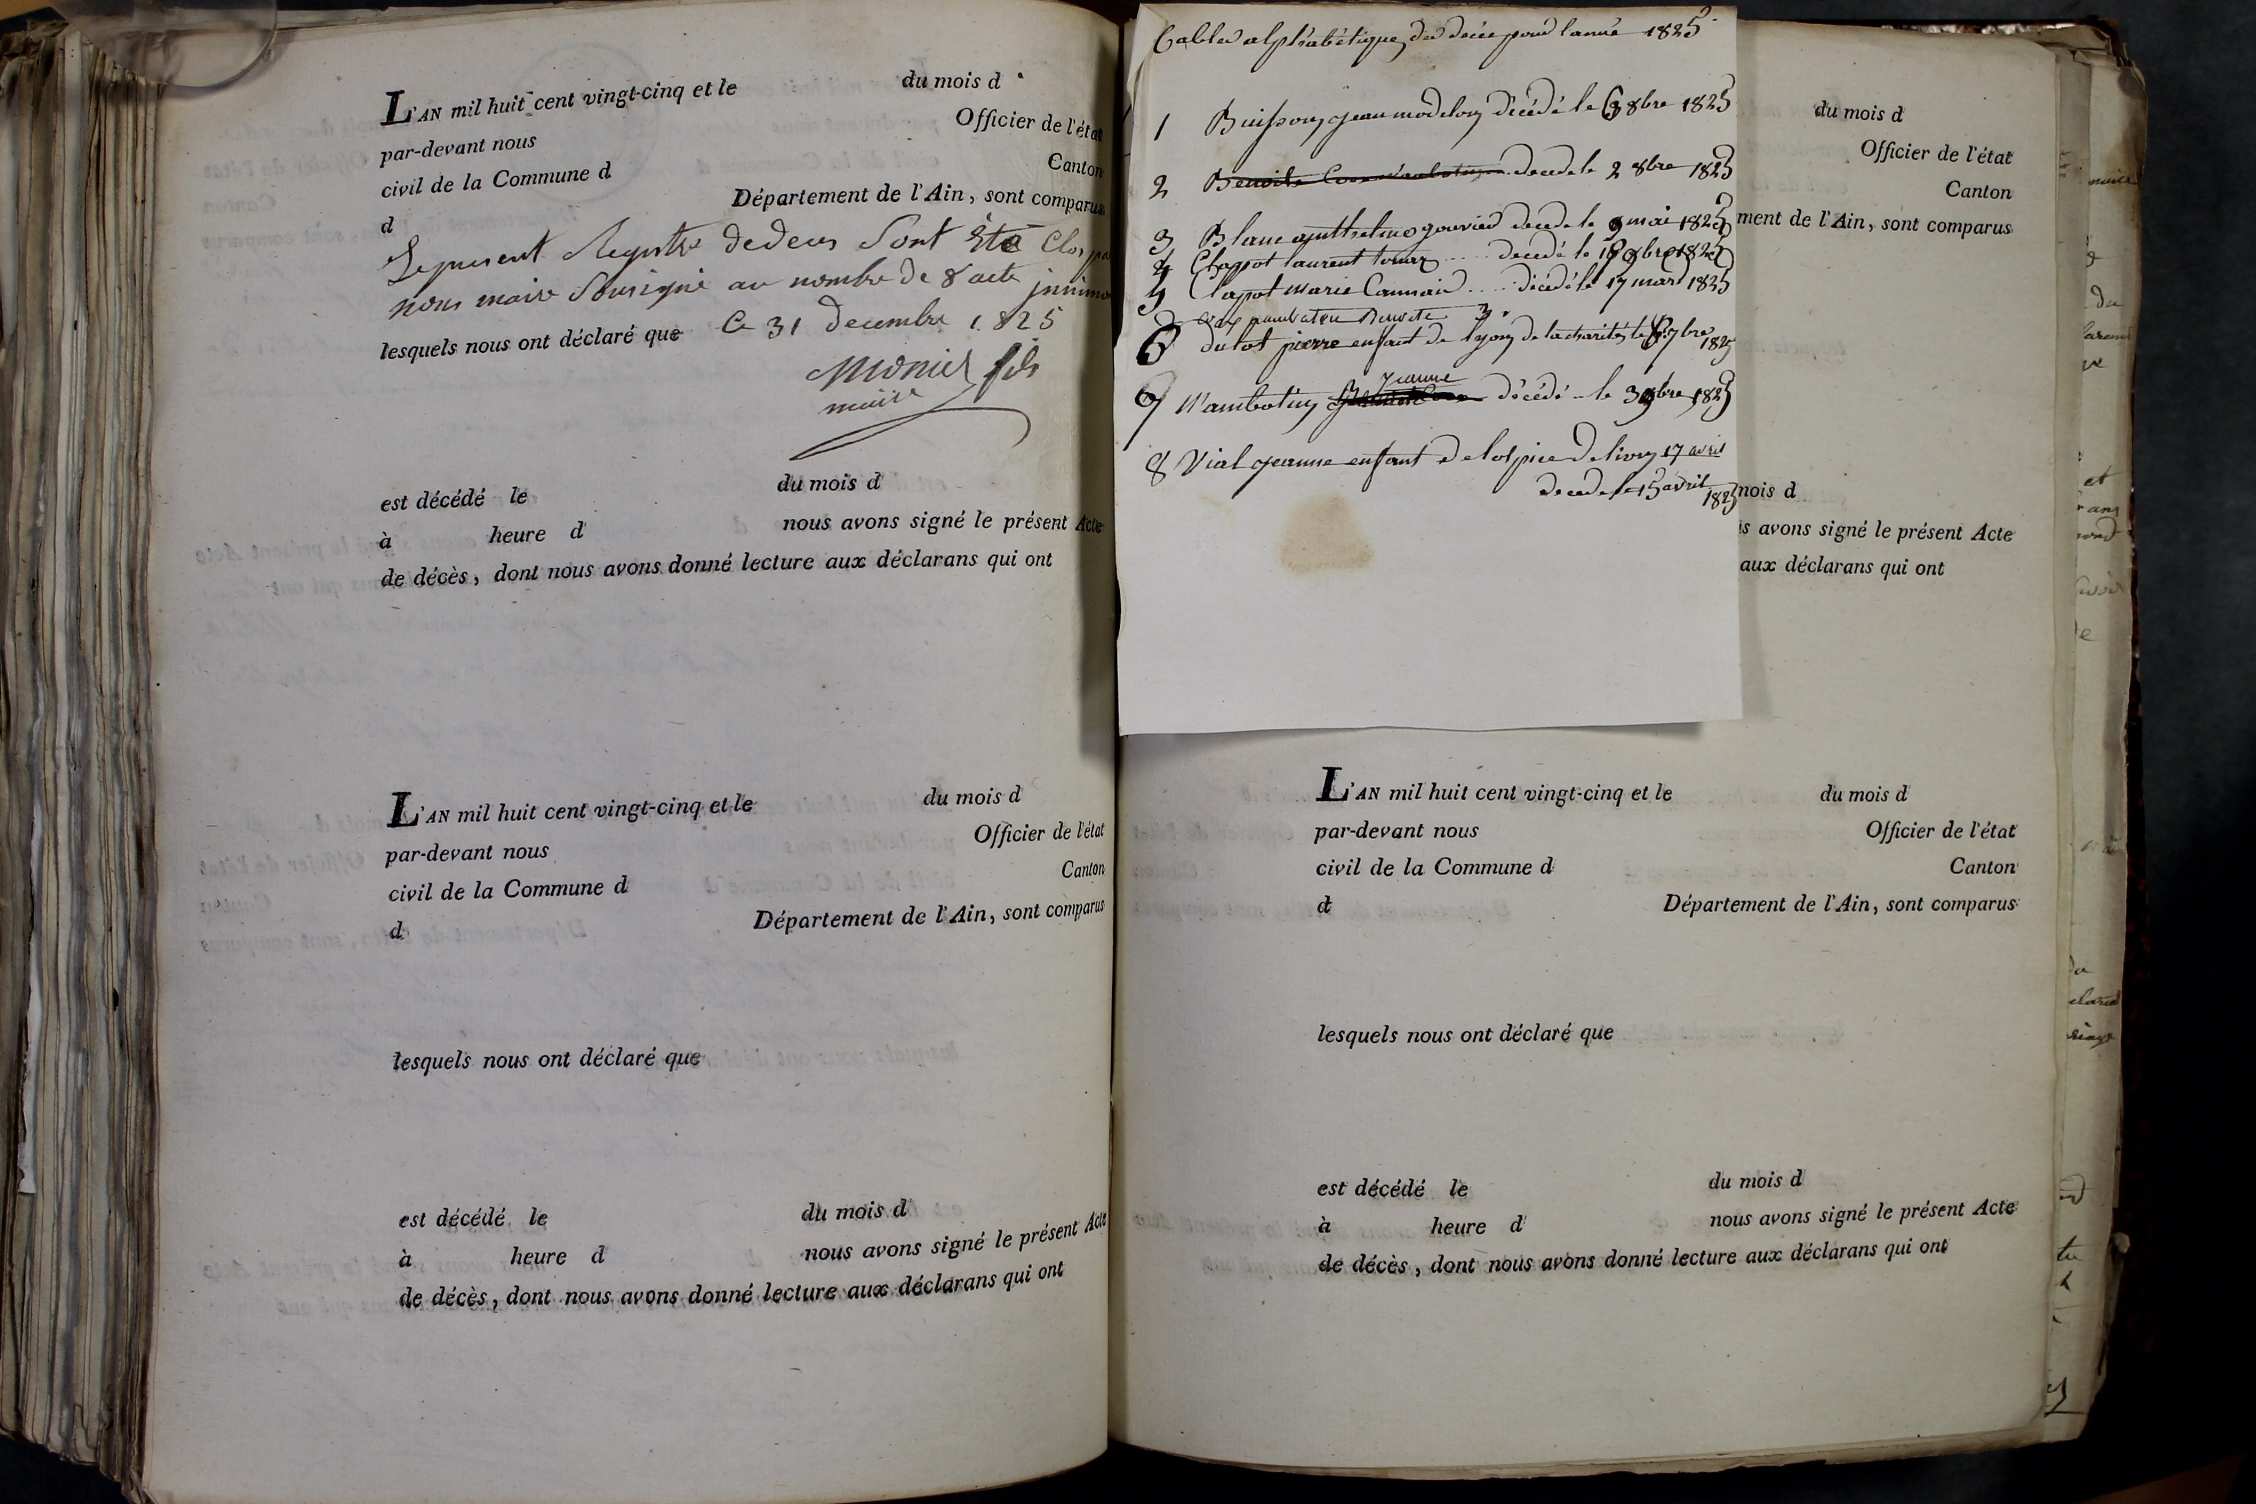 L'AN mil huit cent vingt-cinq et le du mois d
par-devant nous Officier de l'état
civil de la Commune d Canton
d Département de l'Ain, sont comparus
Le present Registre dedeces Sont Eté Clos par
nous maire Sousigné au nombre de 8 acte
lesquels nous ont déclaré que Ce 31 decembre 1825
monier fils
maire
est décédé le du mois d
à heure d nous avons signé le présent Acte
de décès, dont nous avons donné lecture aux déclarans qui ont
L'AN mil huit cent vingt-cinq et le du mois d
par-devant nous Officier de l'état
civil de la Commune d Canton
d Département de l'Ain, sont comparus
lesquels nous ont déclaré que
est décédé le du mois d
à heure d nous avons signé le présent Acte
de décès, dont nous avons donné lecture aux déclarans qui ont
Tables alphabétique des deces pour lannée 1825
1 Buisson jean décédé le 8bre 1825
2 Benoite decede le 2 8bre 1825
3 Blanc decede le 9 mai 1825
4 Chapot laurent decedé le 1825
5 Chapot marie décédé le 17 mars 1825
6 dulot pierre enfant de lyon de la charité le 7bre 1825
jeanne
7 décédé le 3 1825
8 Vial jeanne enfant de lospice de lion 17 avril
decede le 15 avril 1825
du mois d
Officier de l'état
Canton
ment de l'Ain, sont comparus
mois d
s avons signé le présent Acte
aux déclarans qui ont
L'AN mil huit cent vingt-cinq et le du mois d
par-devant nous Officier de l'état
civil de la Commune d Canton
d Département de l'Ain, sont comparus
lesquels nous ont déclaré que
est décédé le du mois d
à heure d nous avons signé le présent Acte
de décès, dont nous avons donné lecture aux déclarans qui ont